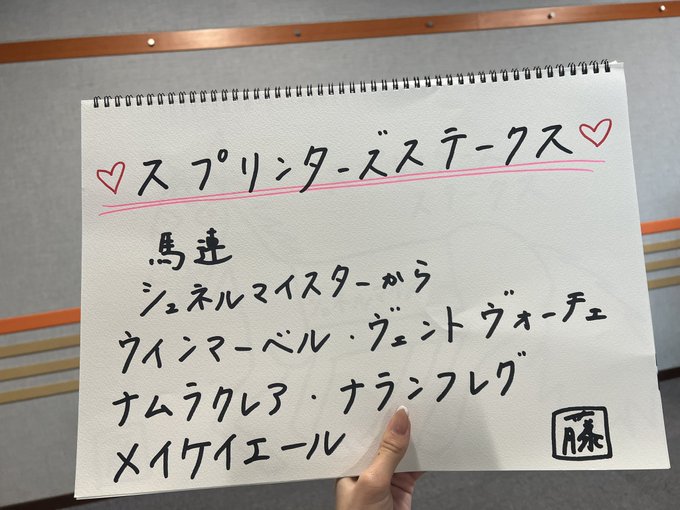 ♡スプリンターズステークス♡
馬連
シュネルマイスターから
ウインマーベル・ヴェントヴォーチェ
ナムラクレア・ナランフレグ
メイケイエール
藤